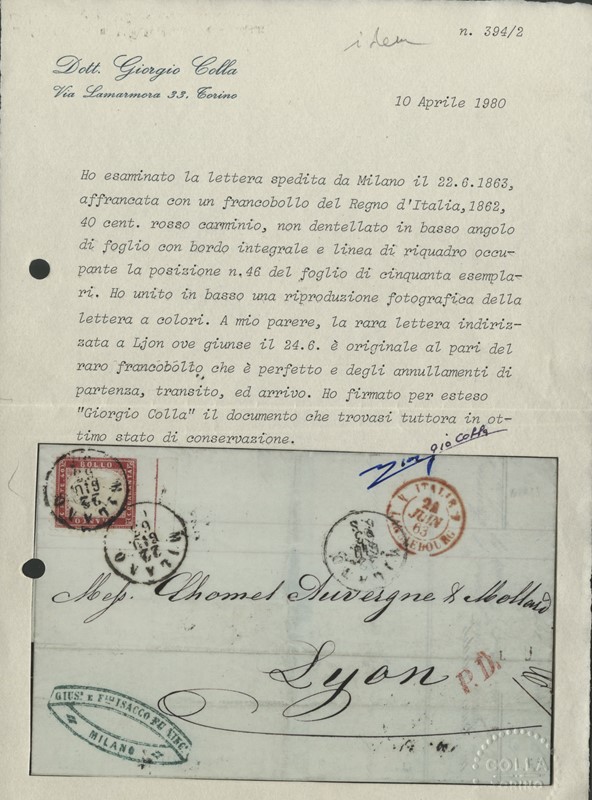 n. 394/2
idem
Dott. Giorgio Colla
Via Lamarmora 33, Torino
10 Aprile 1980
Ho esaminato la lettera spedita da Milano il 22.6.1863,
affrancata con un francobollo del Regno d'Italia,1862,
40 cent. rosso carminio, non dentellato in basso angolo
di foglio con bordo integrale e linea di riquadro occu-
pante la posizione n.46 del foglio di cinquanta esempla-
ri. Ho unito in basso una riproduzione fotografica della
lettera a colori. A mio parere, la rara lettera indiriz-
zata a Ljon ove giunse il 24.6. è originale al pari del
raro francobollo che è perfetto e degli annullamenti di
partenza, transito, ed arrivo. Ho firmato per esteso
"Giorgio Colla" il documento che trovasi tuttora in ot-
timo stato di conservazione.
BOLLO
MILANO
22
GIU
MILANO
22
GIU
ITALIE
24
JUIN
63
Mess. Chomel Auvergne & Mollard
Lyon
P.D.
GIUS. E F.LLI ISACCO
MILANO
COLLA
TORINO